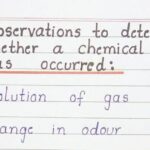 bservations to dete
ether a chemical
as occurred:
olution of gas
ange in odour